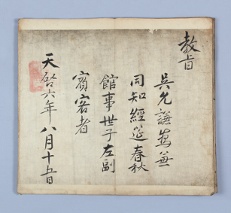 教旨
吳允謙爲兼
同知經筵春秋
館事世子左副
賓客者
天啓六年八月十五日